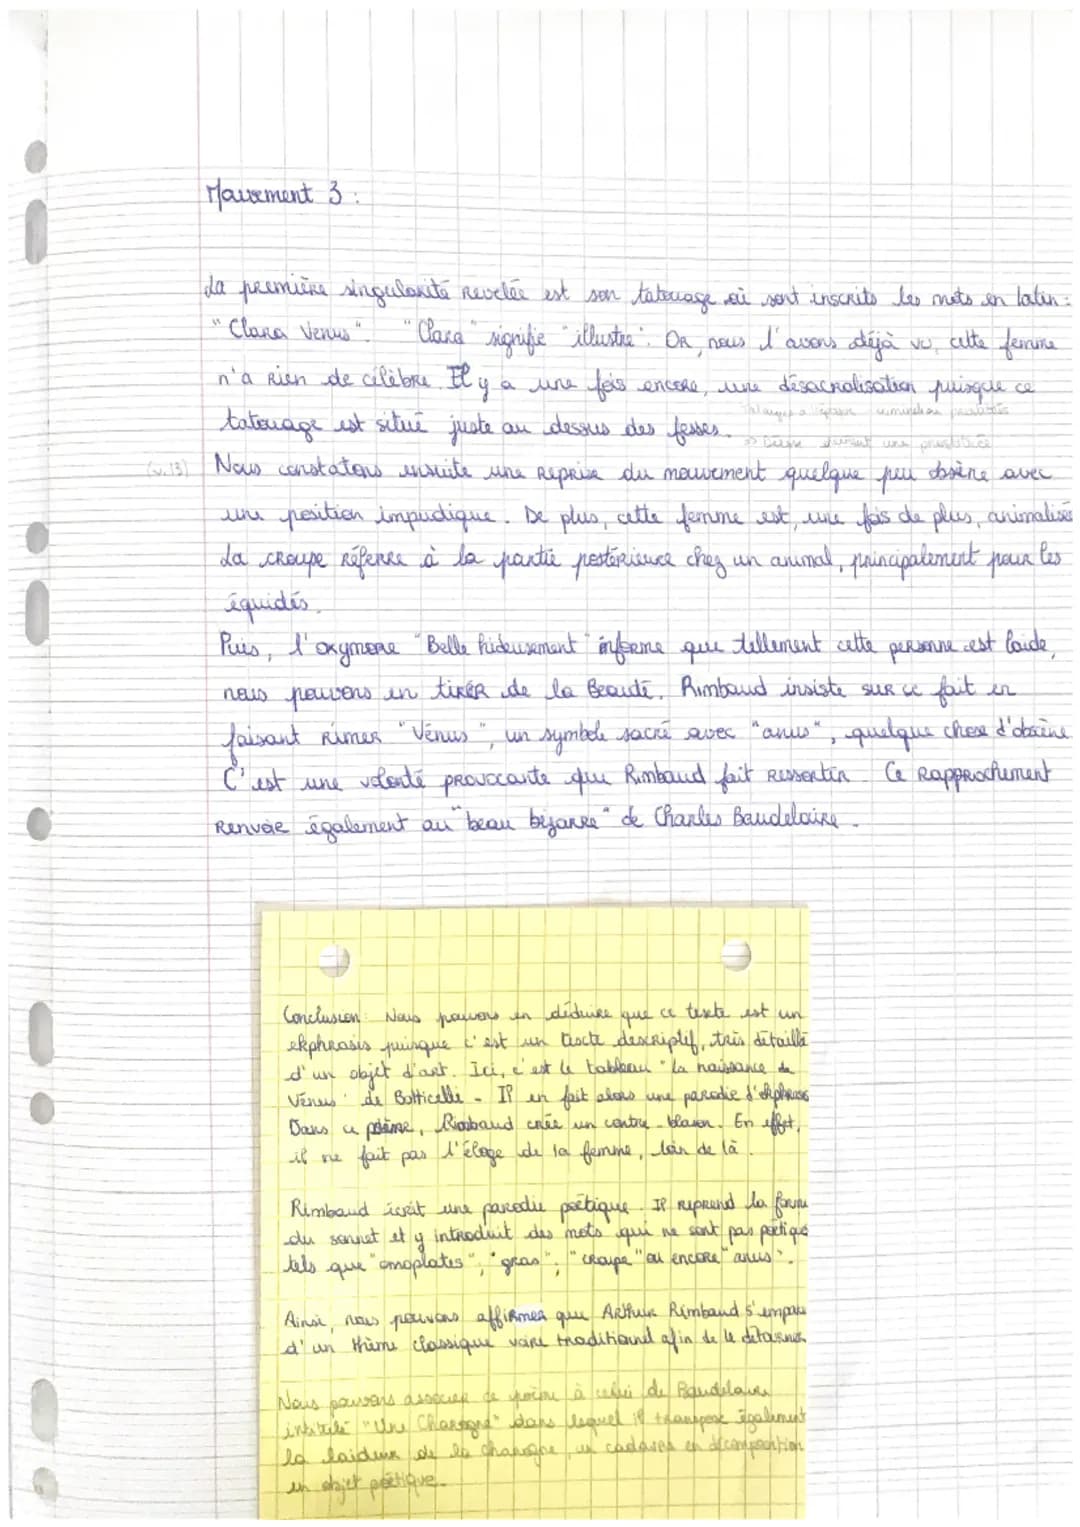 Mouvement 3 :
La première singularité revelée est son tatouage où sont inscrits les mots en latin :
"Clara Venus". "Clara" signifie "illustre". Or, nous l'avons déjà vu, cette femme
n'a rien de célèbre. Il y a une fois encore, une désacralisation puisque ce
tatouage est situé juste au dessus des fesses.
une prostituée
(v.13) Nous constatons ensuite une reprise du mouvement quelque peu obsène avec
une position impudique. De plus, cette femme est, une fois de plus, animalisé
La croupe réfère à la partie postérieure chez un animal, principalement pour les
équidés.
Puis, l'oxymore "Belle hideusement" informe que tellement cette personne est laide,
nous pouvons en tirer de la Beauté. Rimbaud insiste sur ce fait en
faisant rimer "Vénus", un symbole sacré avec "anus", quelque chose d'obscène
C'est une volonté provocante que Rimbaud fait ressortir. Ce rapprochement
renvoie également au "beau bizarre" de Charles Baudelaire.
Conclusion : Nous pouvons en déduire que ce texte est un
ekphrasis puisque c'est un texte descriptif, très détaillé
d'un objet d'art. Ici, c'est le tableau "La naissance de
Vénus" de Botticelli. Il en fait alors une parodie d'ekphrasis
Dans ce poème, Rimbaud crée un contre-blason. En effet,
il ne fait pas l'éloge de la femme, loin de là.
Rimbaud écrit une parodie poétique. Il reprend la forme
du sonnet et y introduit des mots qui ne sont pas poétique
tels que "omoplates", "gras", "croupe" ou encore "anus".
Ainsi, nous pouvons affirmer que Arthur Rimbaud s'empare
d'un thème classique voire traditionnel afin de le détourner.
Nous pouvons associer ce poème à celui de Baudelaire
intitulé "Une Charogne" dans lequel il transpose également
la laideur de la charogne, un cadavre en décomposition
en objet poétique.